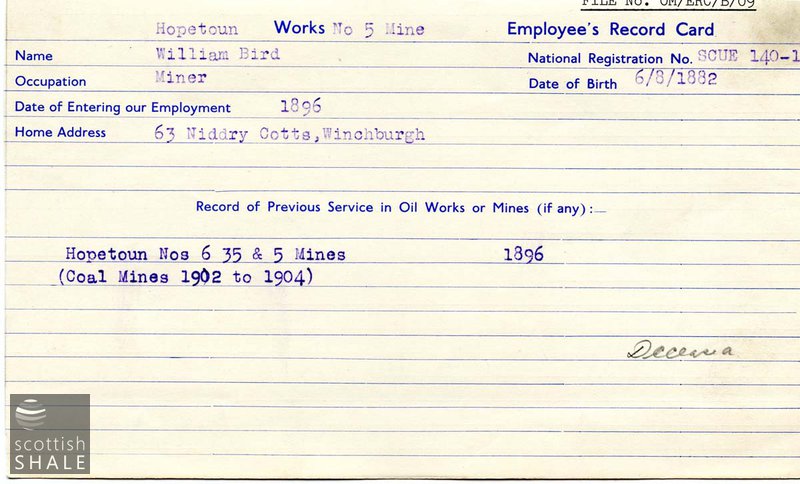 FILE No. OM/ERC/B/09
Hopetoun Works No 5 Mine Employee's Record Card
Name William Bird National Registration No. SCUE 140-1
Occupation Miner Date of Birth 6/8/1882
Date of Entering our Employment 1896
Home Address 63 Niddry Cotts, Winchburgh
Record of Previous Service in Oil Works or Mines (if any):—
Hopetoun Nos 6 35 & 5 Mines 1896
(Coal Mines 1902 to 1904)
scottish
SHALE